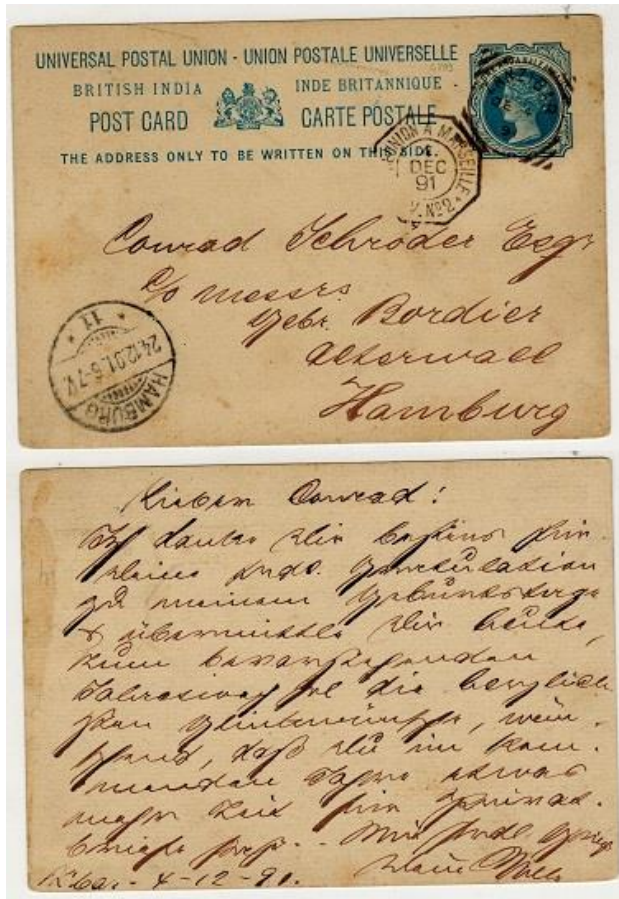 UNIVERSAL POSTAL UNION - UNION POSTALE UNIVERSELLE
BRITISH INDIA INDE BRITANNIQUE
POST CARD CARTE POSTALE
THE ADDRESS ONLY TO BE WRITTEN ON THIS SIDE.
ZANZIBAR
DE
91
REUNION A MARSEILLE
DEC
91
Nº2
Conrad Schröder Esqr
c/o messrs
Gebr. Bordier
Alterwall
Hamburg
HAMBURG
24.12.91. 6-7 V.
* 11 *
Lieber Conrad!
Ich danke Dir bestens für
Deine frdl. Gratulation
zu meinem Geburtstage
& übermittle Dir heute,
zum bevorstehenden
Jahreswechsel die herzlich
sten Glückwünsche, wün
schend, daß Du im kom
menden Jahre etwas
mehr Zeit für Privat
briefe hast. Mit frdl. Gruß
Dein
Z'bar. 4-12-91.